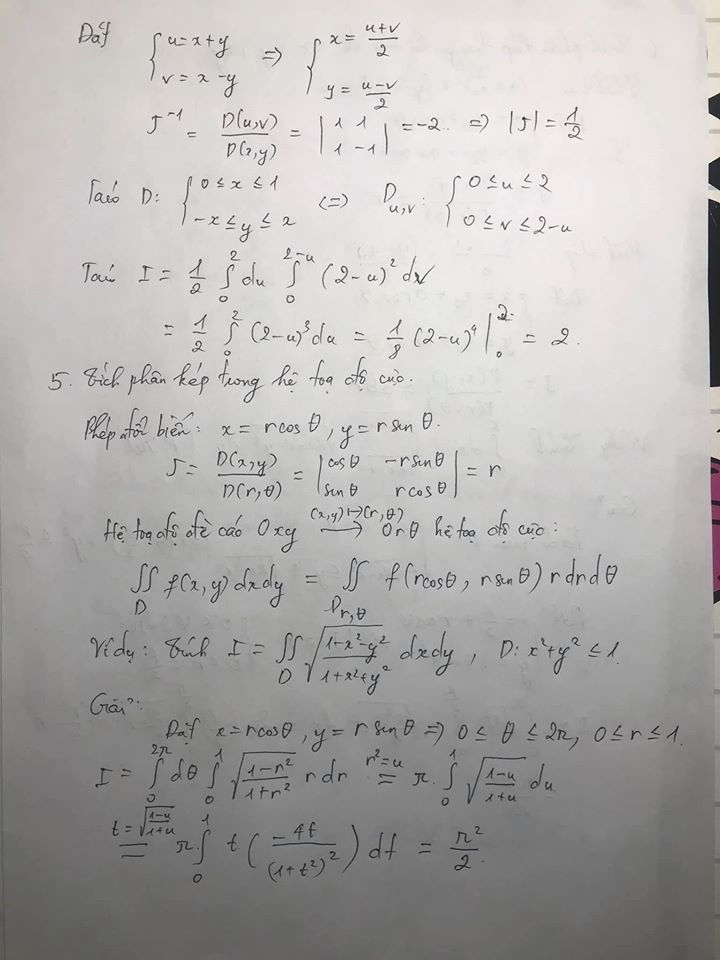 Đặt { u = x + y   v = x - y => { x = (u+v)/2   y = (u-v)/2
J⁻¹ = D(u,v)/D(x,y) = | 1 1   1 -1 | = -2. => |J| = 1/2
Ta có D: { 0 ≤ x ≤ 1   -x ≤ y ≤ x <=> D_{u,v}: { 0 ≤ u ≤ 2   0 ≤ v ≤ 2-u
Ta có I = 1/2 ∫₀² du ∫₀^{2-u} (2-u)² dv
= 1/2 ∫₀² (2-u)³ du = 1/8 (2-u)⁴ |₀² = 2.
5. Tích phân kép trong hệ toạ độ cực.
Phép đổi biến: x = r cos θ, y = r sin θ.
J = D(x,y)/D(r,θ) = | cos θ  -r sin θ   sin θ  r cos θ | = r
Hệ toạ độ đề các Oxy (x,y) ↦ (r,θ) ⟶ Orθ hệ toạ độ cực:
∬_D f(x,y) dxdy = ∬_{D_{r,θ}} f(r cos θ, r sin θ) r dr dθ
Ví dụ: Tính I = ∬_D √((1-x²-y²)/(1+x²+y²)) dxdy, D: x²+y² ≤ 1.
Giải:
Đặt x = r cos θ, y = r sin θ => 0 ≤ θ ≤ 2π, 0 ≤ r ≤ 1.
I = ∫₀^{2π} dθ ∫₀¹ √((1-r²)/(1+r²)) r dr =^{r²=u} π. ∫₀¹ √((1-u)/(1+u)) du
=^{t=√((1-u)/(1+u))} π. ∫₀¹ t ( -4t/(1+t²)² ) dt = π²/2.